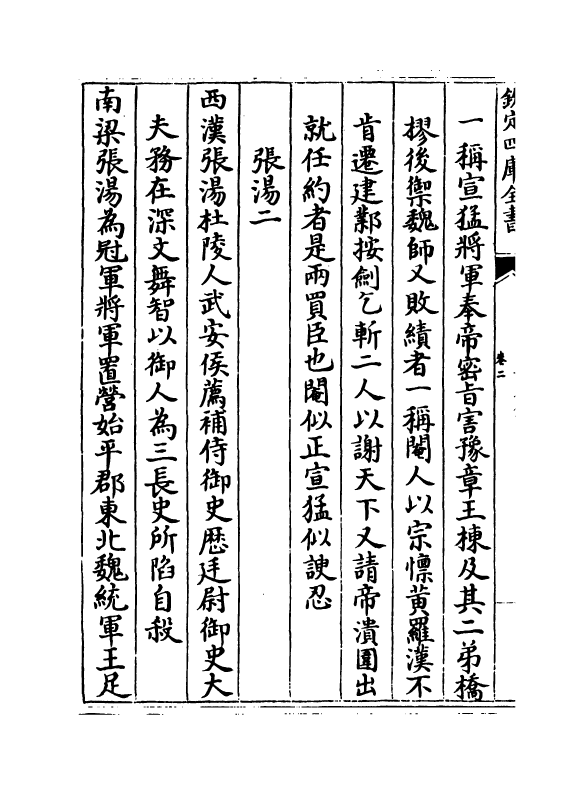 欽定四庫全書
卷二
一稱宣猛將軍奉帝密旨害豫章王棟及其二弟橋
摎後禦魏師又敗績者一稱閹人以宗懍黃羅漢不
肯遷建鄴按劍乞斬二人以謝天下又請帝潰圍出
就任約者是兩買臣也閹似正宣猛似諛忍
張湯二
西漢張湯杜陵人武安侯薦補侍御史歴廷尉御史大
夫務在深文舞智以御人為三長史所陷自殺
南梁張湯為冠軍將軍置營始平郡東北魏統軍王足